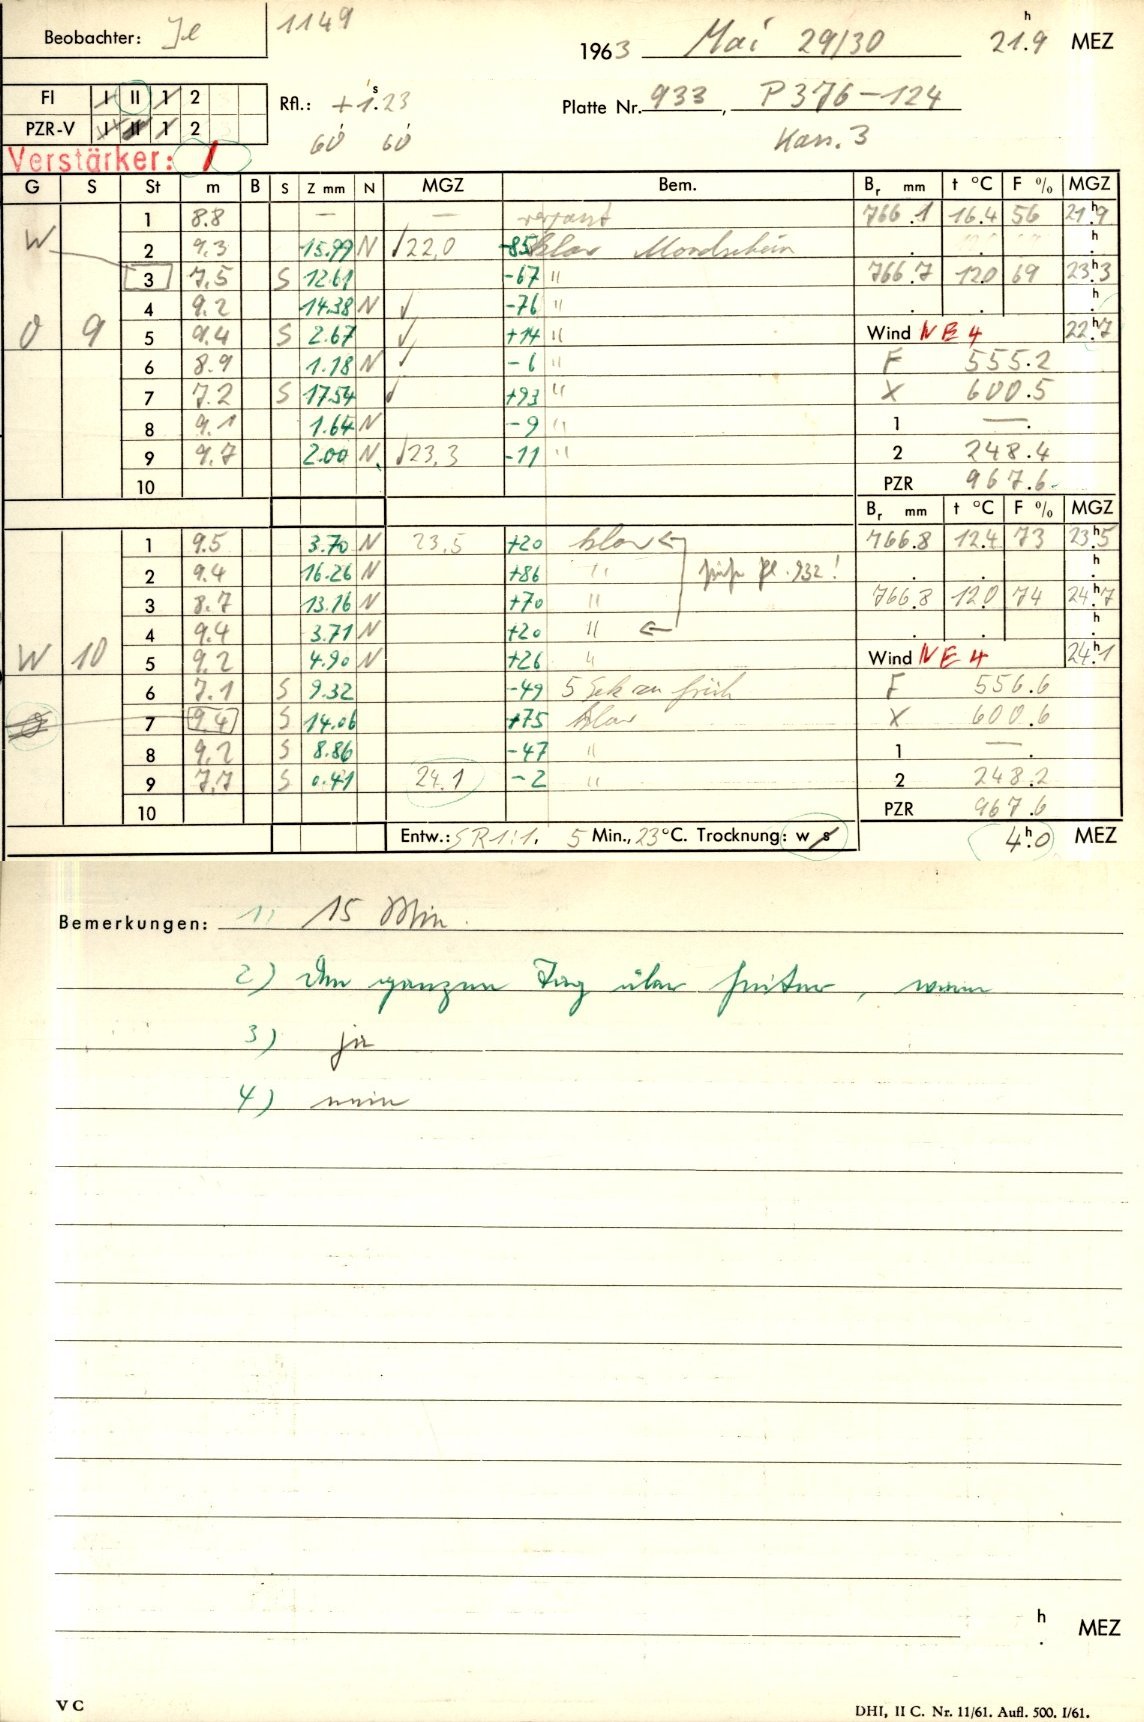 Beobachter: Je 1149 1963 Mai 29/30 21h.9 MEZ
FI I II 1 2 Rfl.: +1s.23 Platte Nr. 933, P 376-124
PZR-V I II 1 2 60 60 Kass. 3
Verstärker: 1
G S St m B S Z mm N MGZ Bem. Br mm t °C F % MGZ
1 8.8 — — verpasst 766.1 16.4 56 21h9
W 2 9.3 15.99 N √22,0 -85 klar Mondschein . . h
3 7,5 S 12.61 -67 " 766.7 12.0 69 23h3
4 9.2 14.38 N √ -76 " . . h
0 9 5 9.4 S 2.67 √ +14 " Wind NE 4 22h7
6 8.9 1.18 N √ -6 " F 555.2
7 7.2 S 17.54 √ +93 " X 600.5
8 9.1 1.64 N -9 " 1 — .
9 9.7 2.00 N √23,3 -11 " 2 248.4
10 PZR 967.6
Br mm t °C F % MGZ
1 9.5 3.70 N 23,5 +20 klar ← 766.8 12.4 73 23h5
2 9.4 16.26 N +86 " siehe Pl. 932! . . h
3 8.7 13.16 N +70 " 766.8 12.0 74 24h7
4 9.4 3.71 N +20 " ← . . h
W 10 5 9.2 4.90 N +26 " Wind NE 4 24h1
6 7.1 S 9.32 -49 5 Sek zu früh F 556.6
0 7 9.4 S 14.06 +75 klar X 600.6
8 9.2 S 8.86 -47 " 1 — .
9 7,7 S 0.41 24.1 -2 " 2 248.2
10 PZR 967.6
Entw.: SR 1:1. 5 Min., 23°C. Trocknung: w s 4h.0 MEZ
Bemerkungen: 1) 15 Min.
2) Den ganzen Tag über heiter, warm
3) ja
4) nein
h
. MEZ
V C DHI, II C. Nr. 11/61. Aufl. 500. I/61.